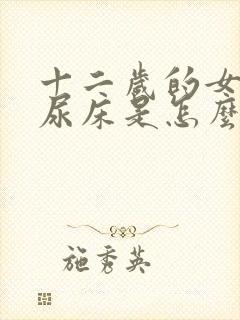 十二歲的女
尿床是怎麼
施秀英